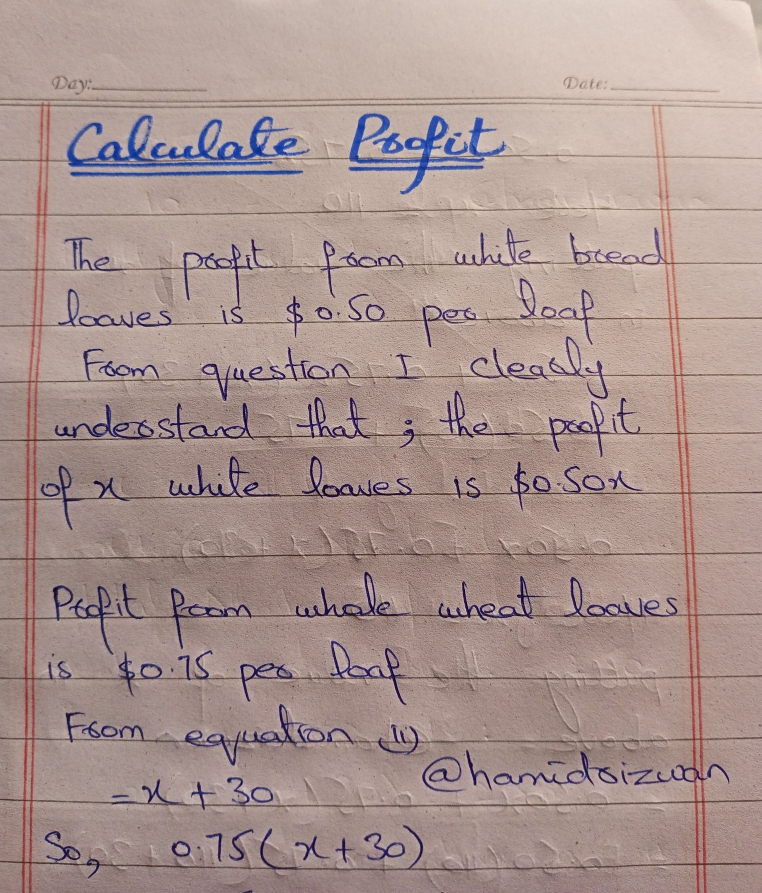 Day:
Date:
Calculate Profit
The profit from white bread
loaves is $0.50 per loaf
From question I clearly
understand that ; the profit
of x white loaves is $0.50x
Profit from whole wheat loaves
is $0.75 per loaf
From equation (ii)
= x + 30
@hamidrizwan
So, 0.75(x+30)